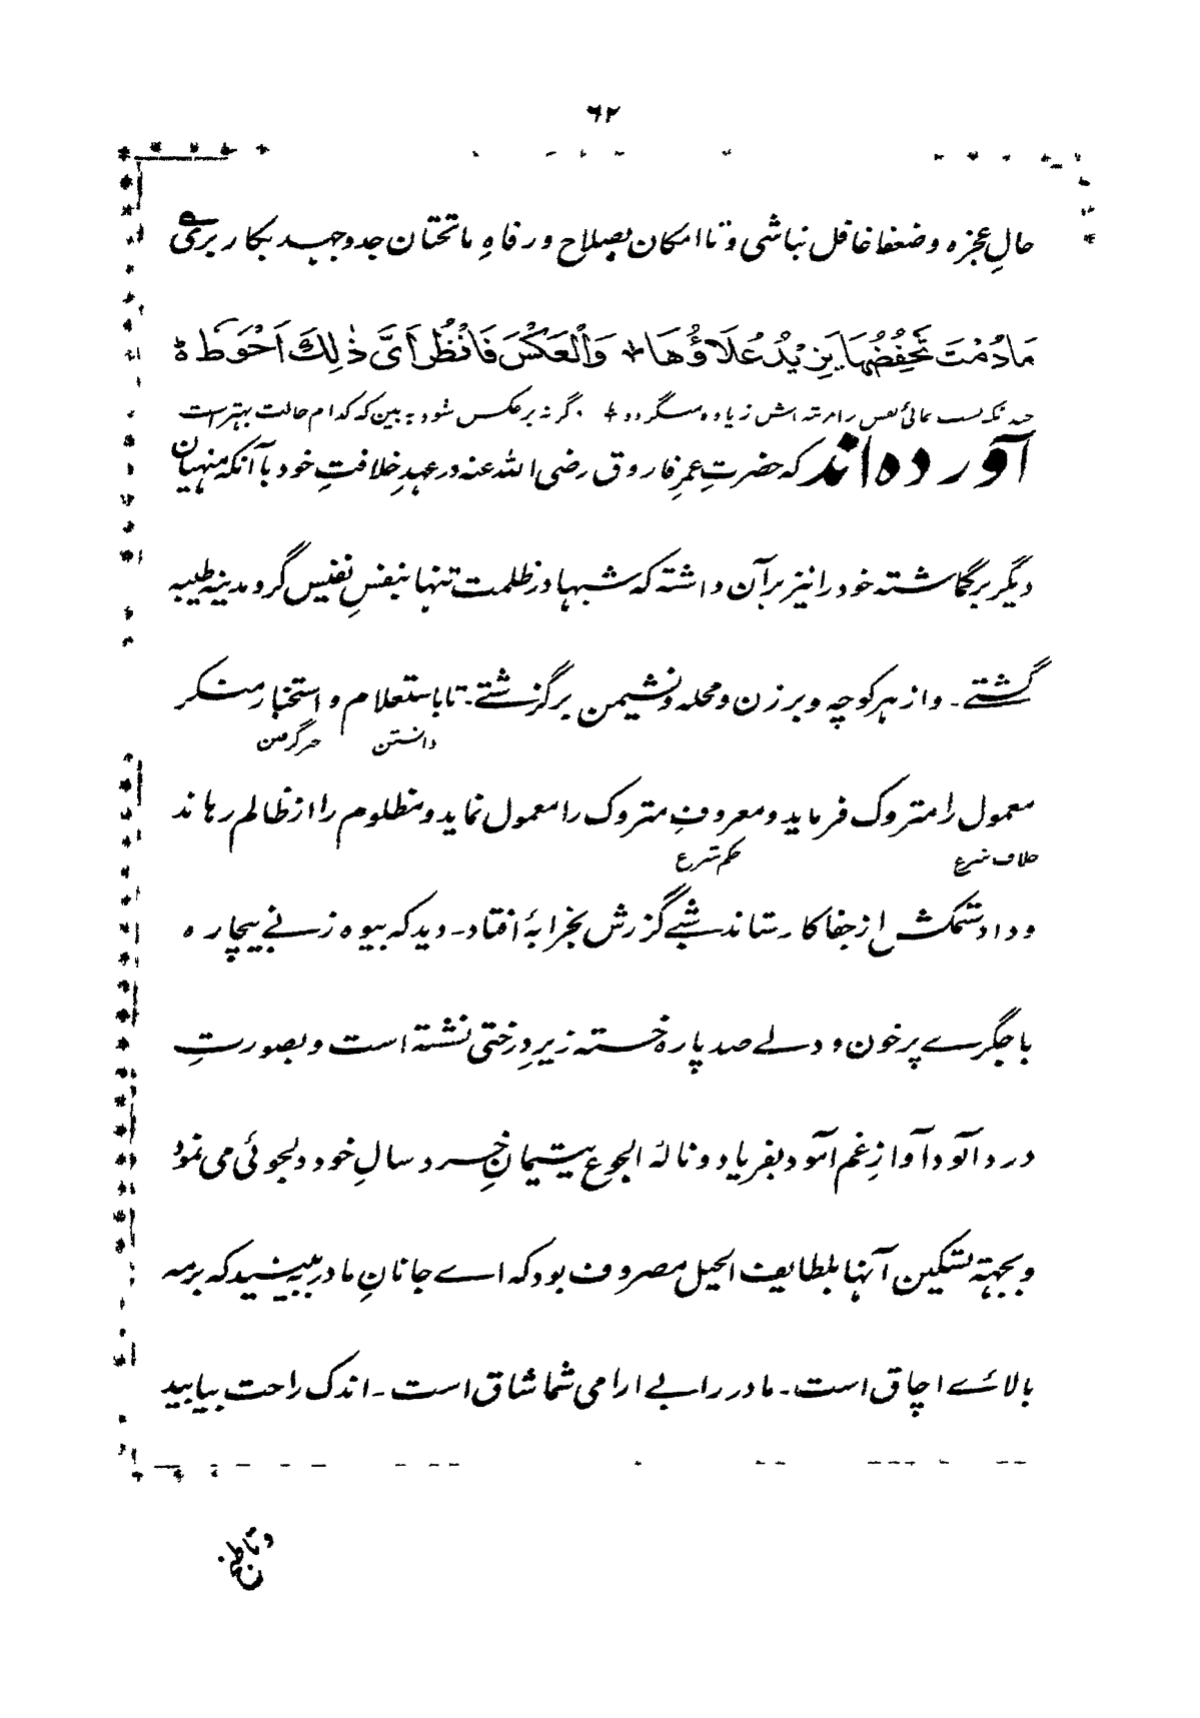 ٦٢
حالِ عجزہ و ضعفا غافل نباشی و تا امکان بصلاح و رفاہِ ماتحتان جد و جہد بکار بری
مَادُمْتَ تَخْفِضُهَا يَزِيْدُ عُلَاؤُهَا ۞ وَالْعَكْسَ فَانْظُرْ اَیَّ ذٰلِكَ اَحْوَطُ ؕ
زیادہ میگردد ۔ گر نہ بر عکس شود بہ بین کہ کدام حالت بہتر است
آوردہ اند کہ حضرتِ عمرِ فاروق رضی اللہ عنہ در عہدِ خلافتِ خود با آنکہ منہیان
دیگر برگماشتہ خود را نیز بر آن داشتہ کہ شبہا در ظلمت تنہا بنفسِ نفیس گرد مدینہ طیبہ
گشتے ۔ و از ہر کوچہ و برزن و محلہ و نشیمن برگزشتے ۔ تا باستعلام و استخبار منکر
دانستن خبر گرفتن
معمول را متروک فرماید و معروفِ متروک را معمول نماید و مظلوم را از ظالم رہاند
خلاف شرع حکم شرع
و داد ستمکش از جفا کار ستاند شبے گزرش بخرابۂ افتاد ۔ دید کہ بیوہ زنے بیچارہ
با جگرے پرخون و دلے صد پارہ خستہ زیرِ درختی نشستہ است و بصورتِ
درد آلود آوازِ غم آمود بفریاد و نالۂ الجوعِ یتیمانِ خرد سالِ خود دلجوئی می نمود
و بجہتہ تسکین آنہا بلطایف الحیل مصروف بود کہ اے جانانِ مادر ببینید کہ برمہ
بالائے اچاق است ۔ مادر را بے ارامی شما شاق است ۔ اندک راحت بیابید